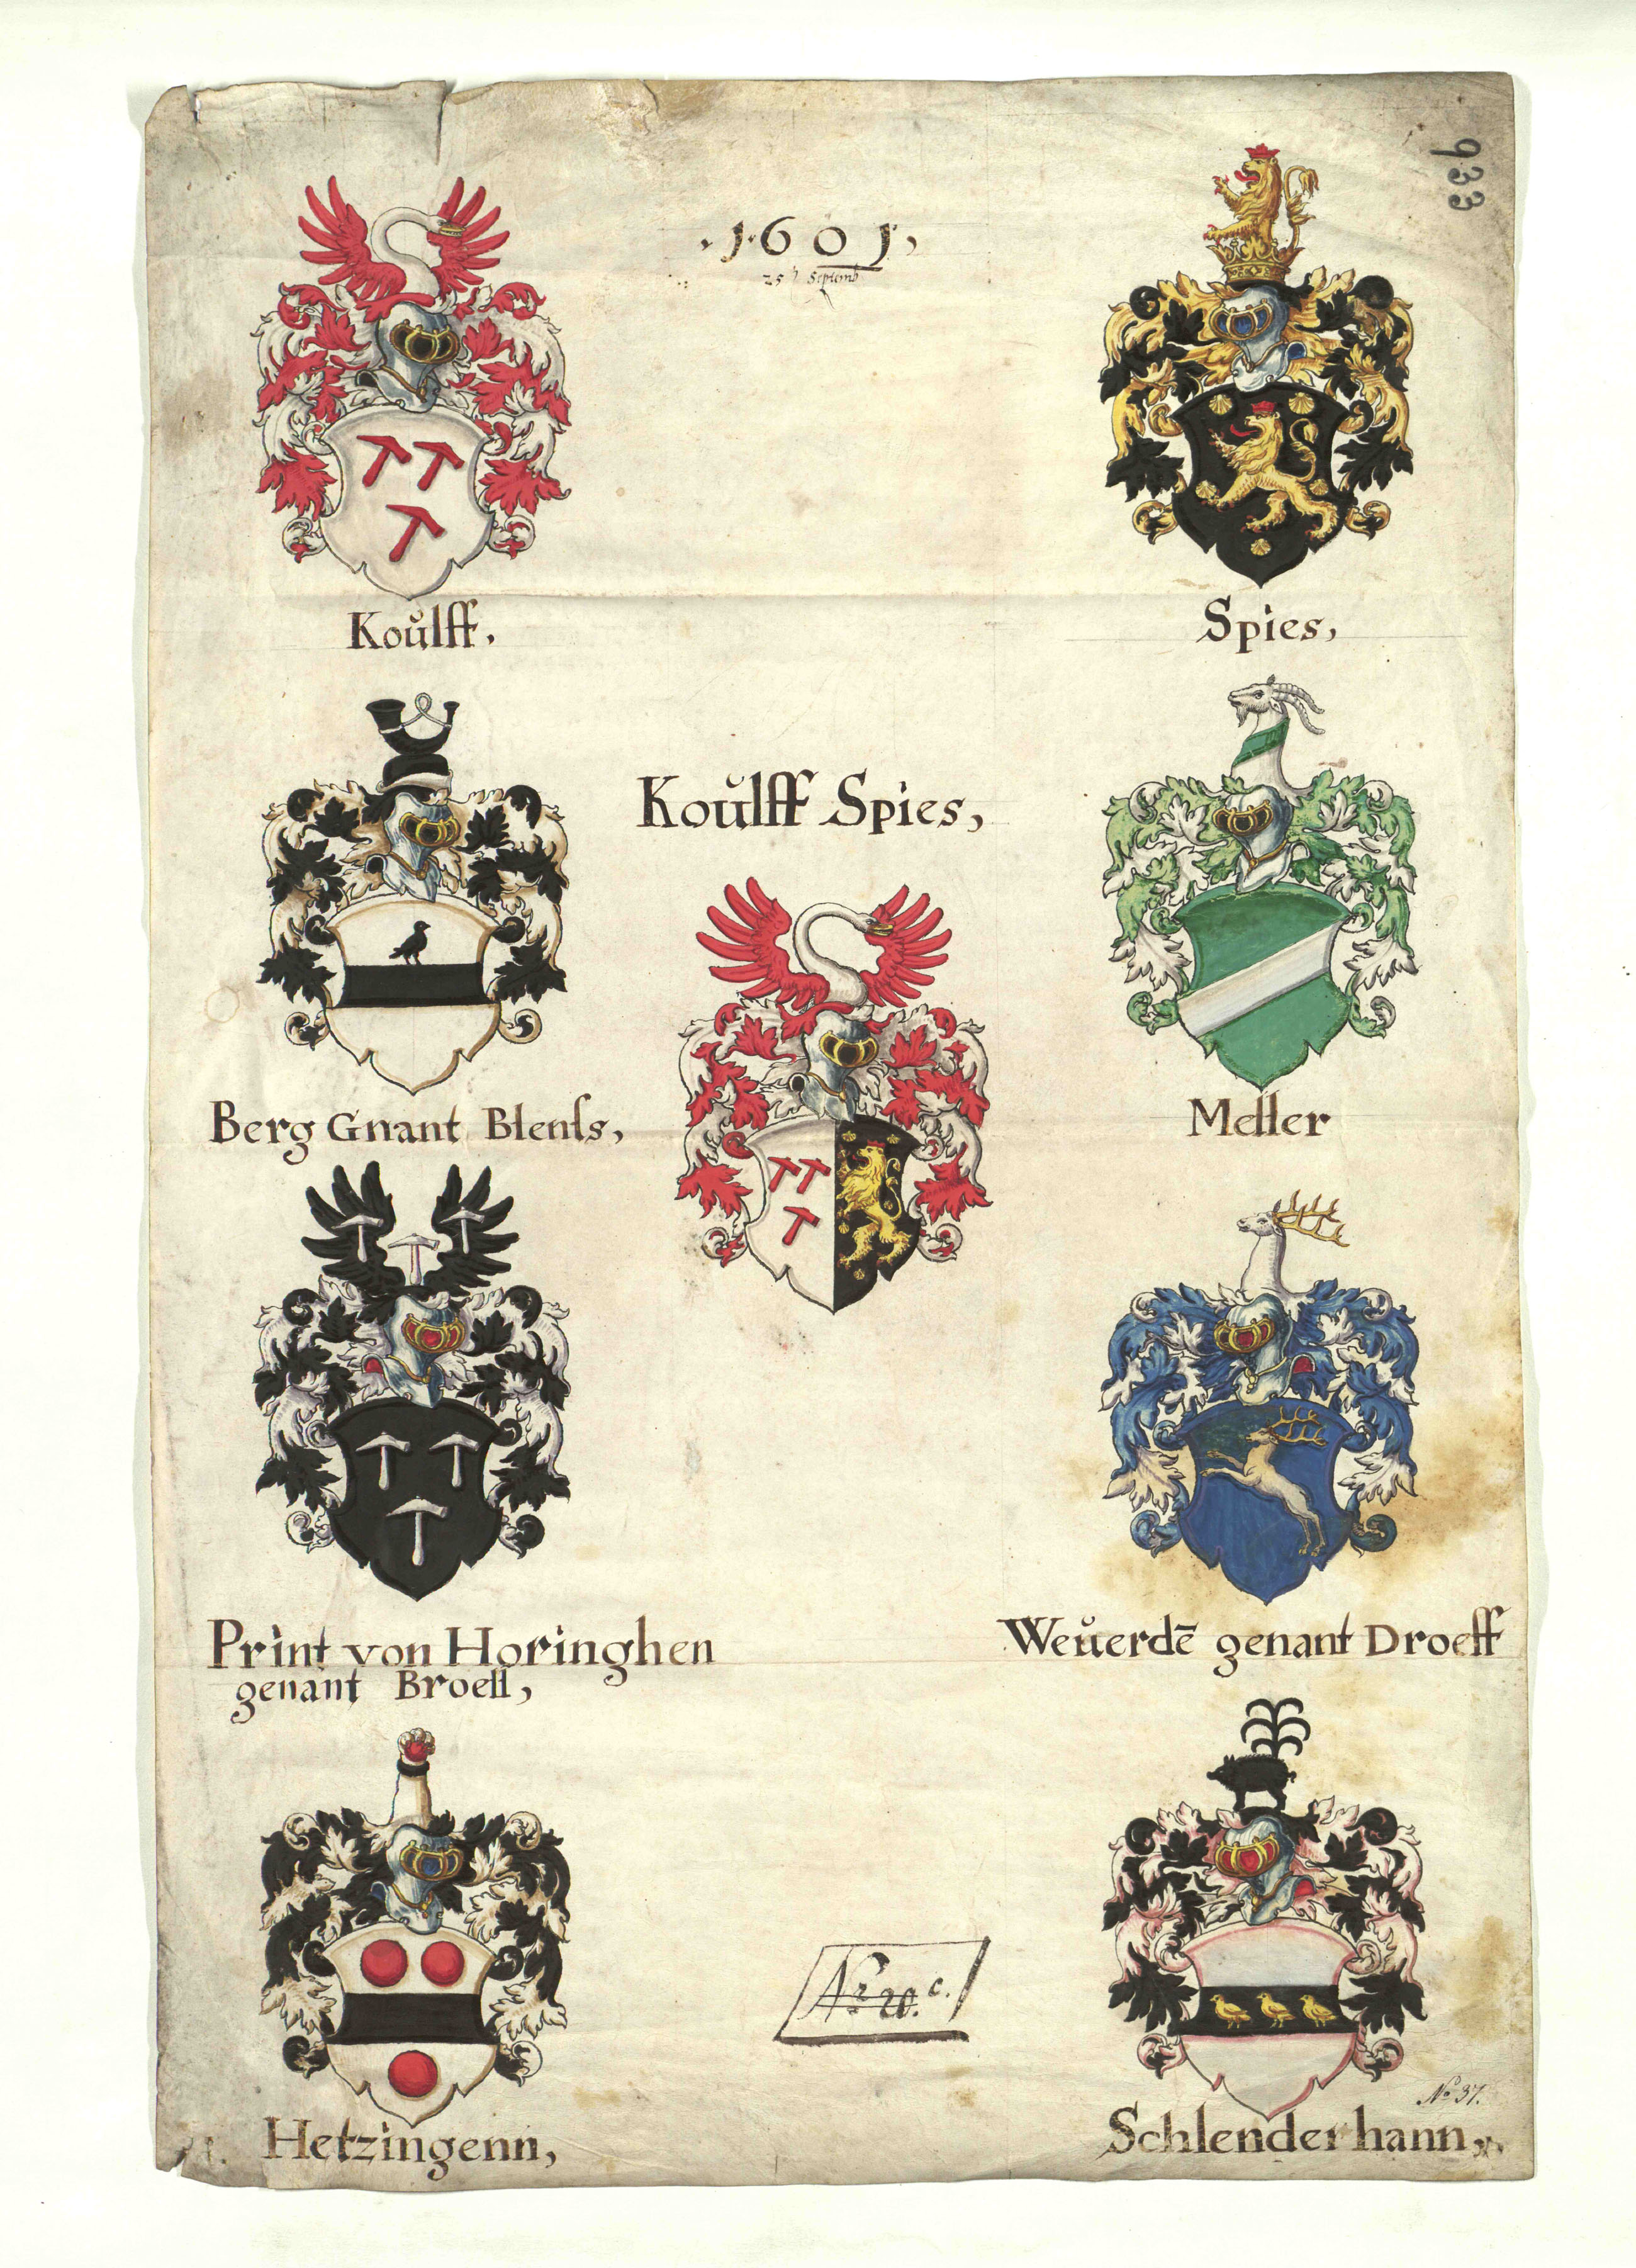 933
1601,
25 Septemb
Koŭlff.
Spies,
Koŭlff Spies,
Berg Gnant Blenſs,
Meller
Print von Horinghen
genant Broell,
Weŭerdē genant Droeff
Nr 20. c.
No 37.
Hetzingenn,
Schlenderhann,